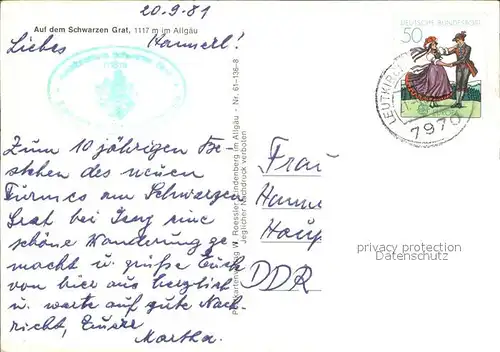 20.9.81
Auf dem Schwarzen Grat, 1117 m im Allgäu
Liebes Hannerl!
Zum 10 jährigen Be-
stehen des neuen
Turmes am Schwarzen
Grat bei Isny eine
schöne Wanderung ge
macht u. grüße Euch
von hier aus herzlich
u. warte auf gute Nach
richt, Eure
Martha.
Postkartenverlag W. Roessler, Lindenberg im Allgäu - Nr. 61-136-8
Jeglicher Nachdruck verboten
DEUTSCHE BUNDESPOST
50
LEUTKIRCH
7970
Frau
Hanne
Haup
DDR
privacy protection
Datenschutz